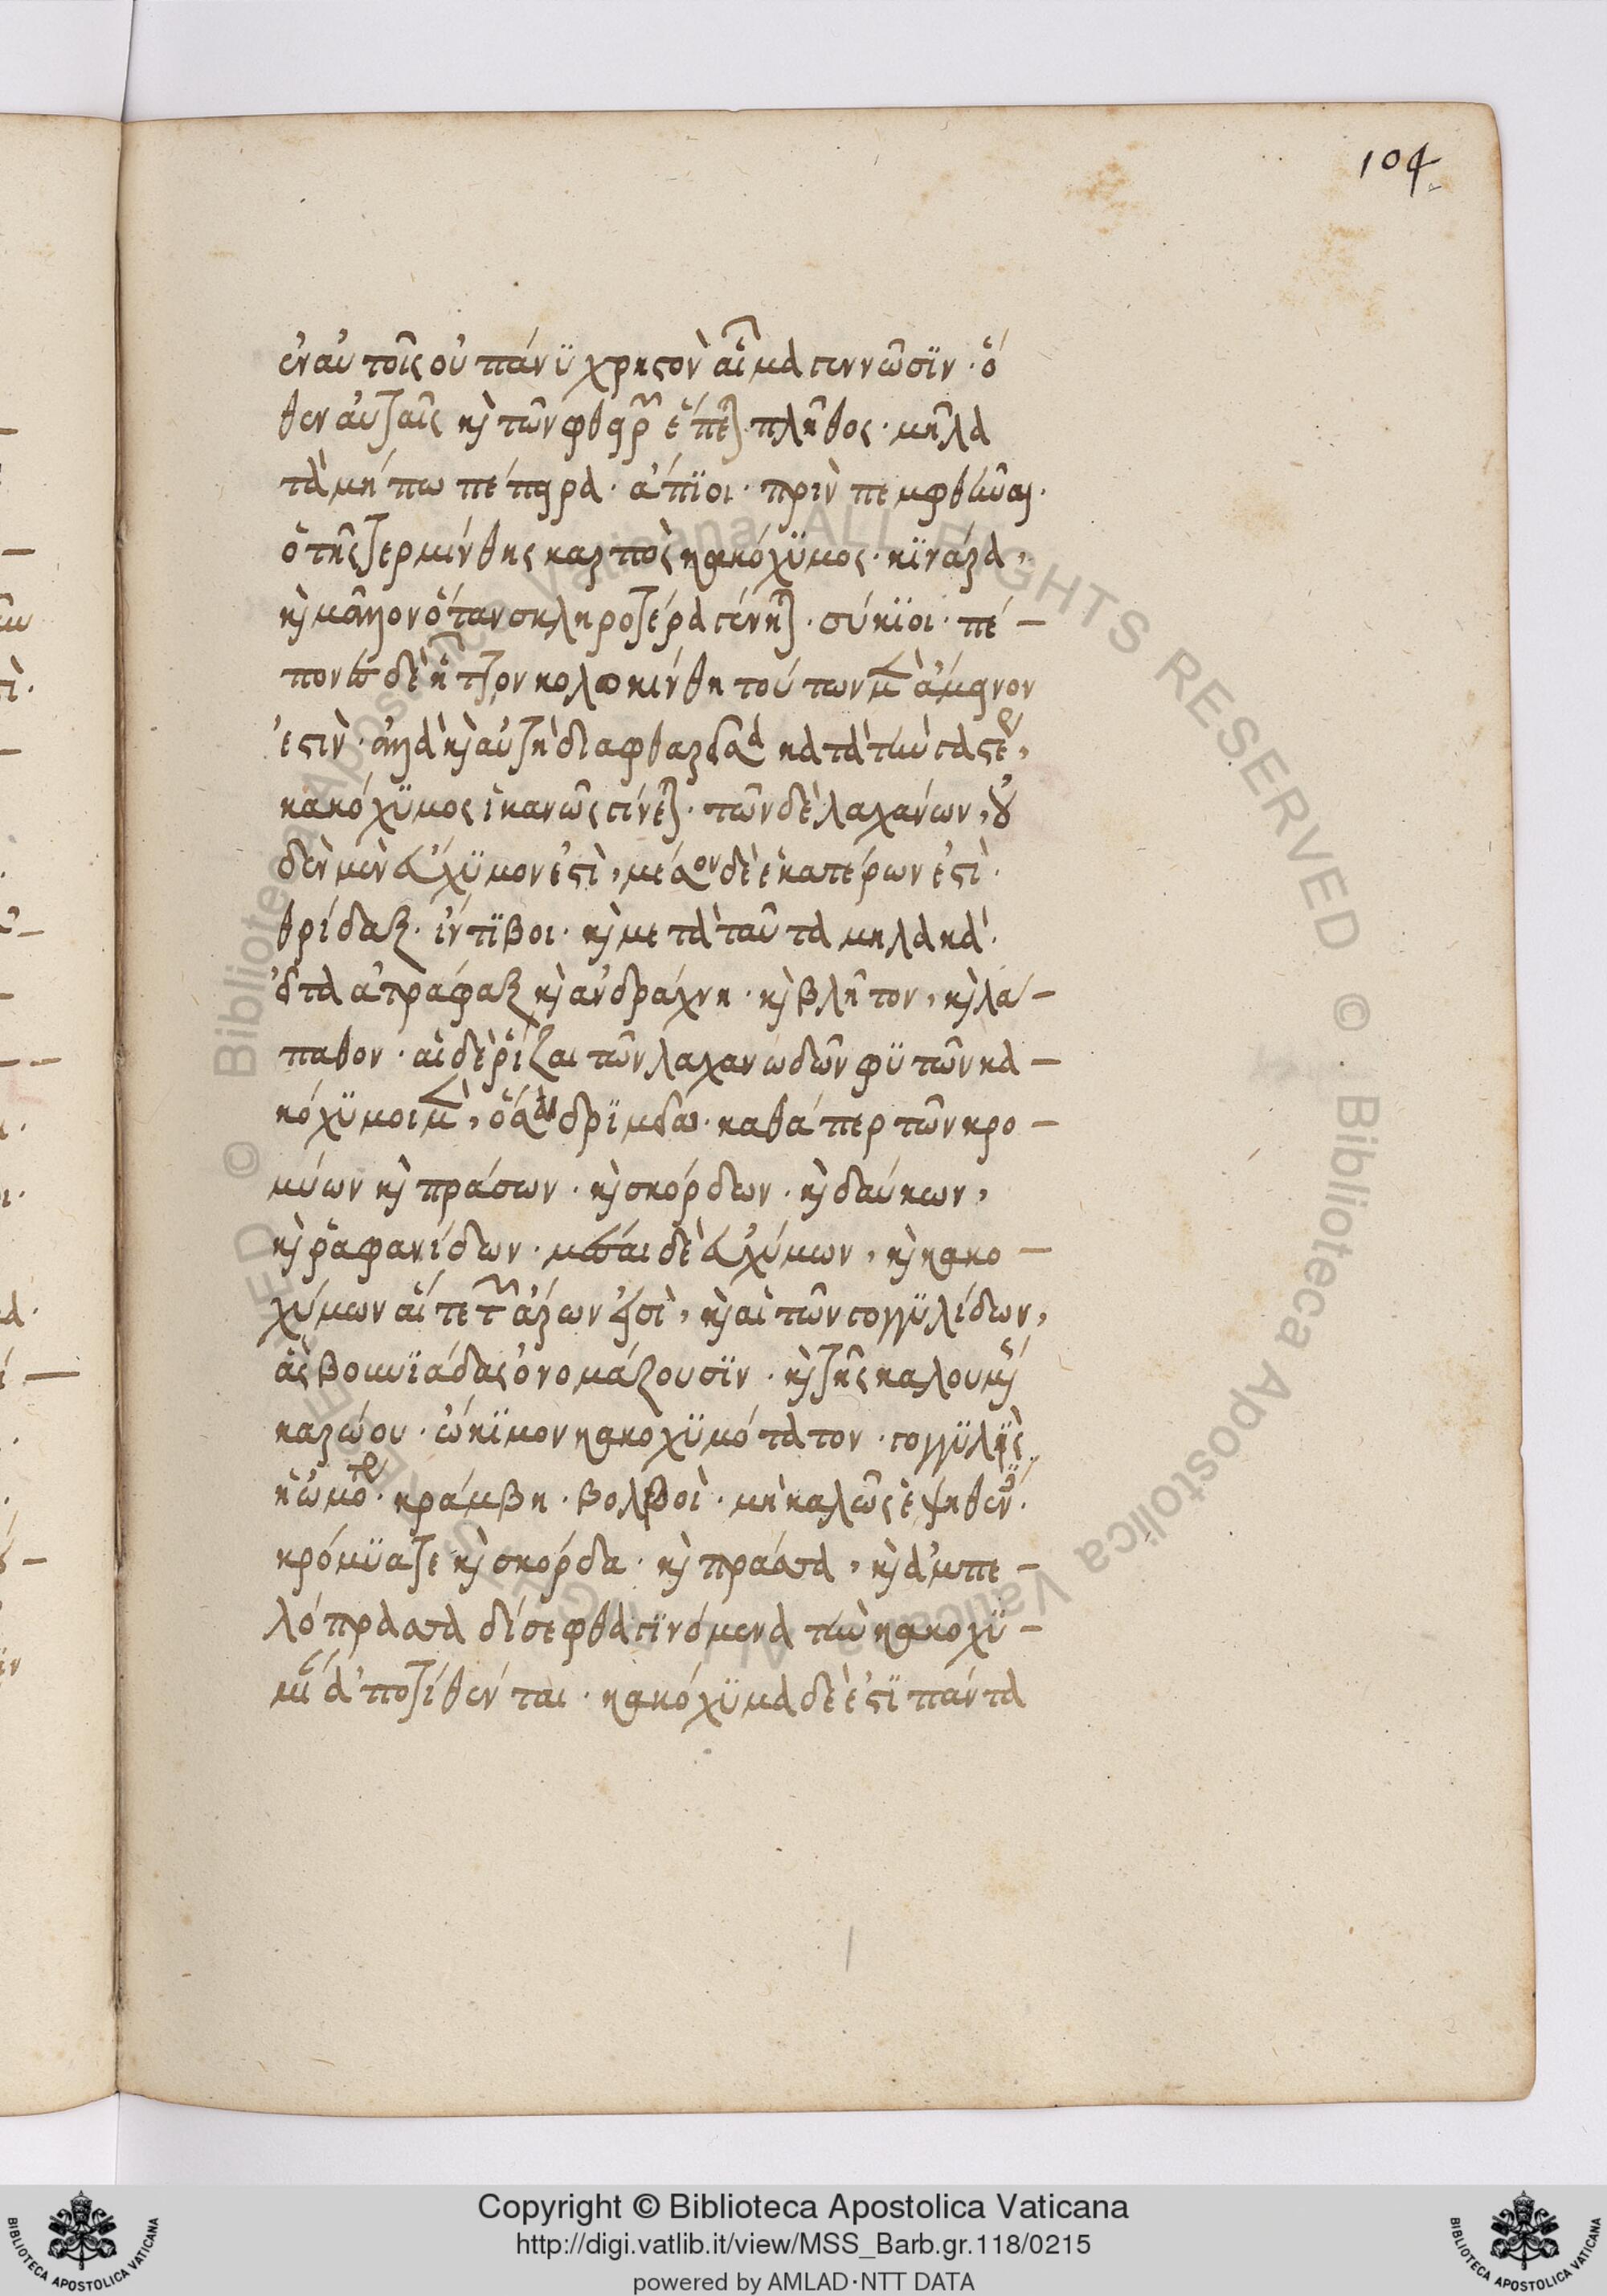 104
ἐν αὐτοῖς οὐ πάνϋ χρηστὸν αἷμα γεννῶσϊν· ὅ
θεν αὐταῖς καὶ τῶν φθειρῶν ἕπεται πλῆθος· μῆλα
τὰ μήπω πέπειρα· ἄπϊοι· πρὶν πεμφθῆναι·
ὁ τῆς τερμίνθης καρπὸς κακόχϋμος· κϊνάρα,
καὶ μᾶλλον ὅταν σκληροτέρα γένηται· σύκϊοι· πέ-
πονες δὲ ἧττον κολοκύνθη τούτων μὲν ἄμεινον
ἐστὶν· ἀλλὰ καὶ αὐτὴ διαφθαρεῖσα κατὰ τὴν γαστέρα,
κακόχϋμος ἱκανῶς γίνεται· τῶν δὲ λαχάνων, οὐ
δὲν μὲν εὔχϋμον ἐστὶ, μέσον δὲ ἑκατέρων ἐστὶ·
θρίδαξ· ἴντϊβοι· καὶ μετὰ ταῦτα μαλακά·
εἶτα ἀτράφαξ καὶ ἀνδράχνη· καὶ βλῆτον, καὶ λά-
παθον· αἱ δὲ ῥίζαι τῶν λαχανωδῶν φϋτῶν κα-
κόχϋμοι μὲν, ὅσαι δρϊμεῖαι· καθάπερ τῶν κρο-
μύων καὶ πράσων· καὶ σκόρδων· καὶ δαύκων,
καὶ ῥαφανίδων· μέσαι δὲ εὐχύμων, καὶ κακο-
χύμων αἵ τε τῶν ἄρων εἰσὶ, καὶ αἱ τῶν γογγϋλίδων,
ἃς βουνϊάδας ὀνομάζουσϊν· καὶ τῆς καλουμένης
καρώου· ὤκϊμον κακοχϋμότατον· γογγϋλὶς
ἡ ὠμοτέρα· κράμβη· βολβοὶ· μὴ καλῶς ἑψηθέντες·
κρόμϋα τε καὶ σκόρδα· καὶ πράσα, καὶ ἀμπε-
λόπρασα δίσεφθα γϊνόμενα τὴν κακοχϋ-
μίαν ἀποτίθενται· κακόχϋμα δὲ ἐστϊ πάντα
Copyright © Biblioteca Apostolica Vaticana
http://digi.vatlib.it/view/MSS_Barb.gr.118/0215
powered by AMLAD·NTT DATA